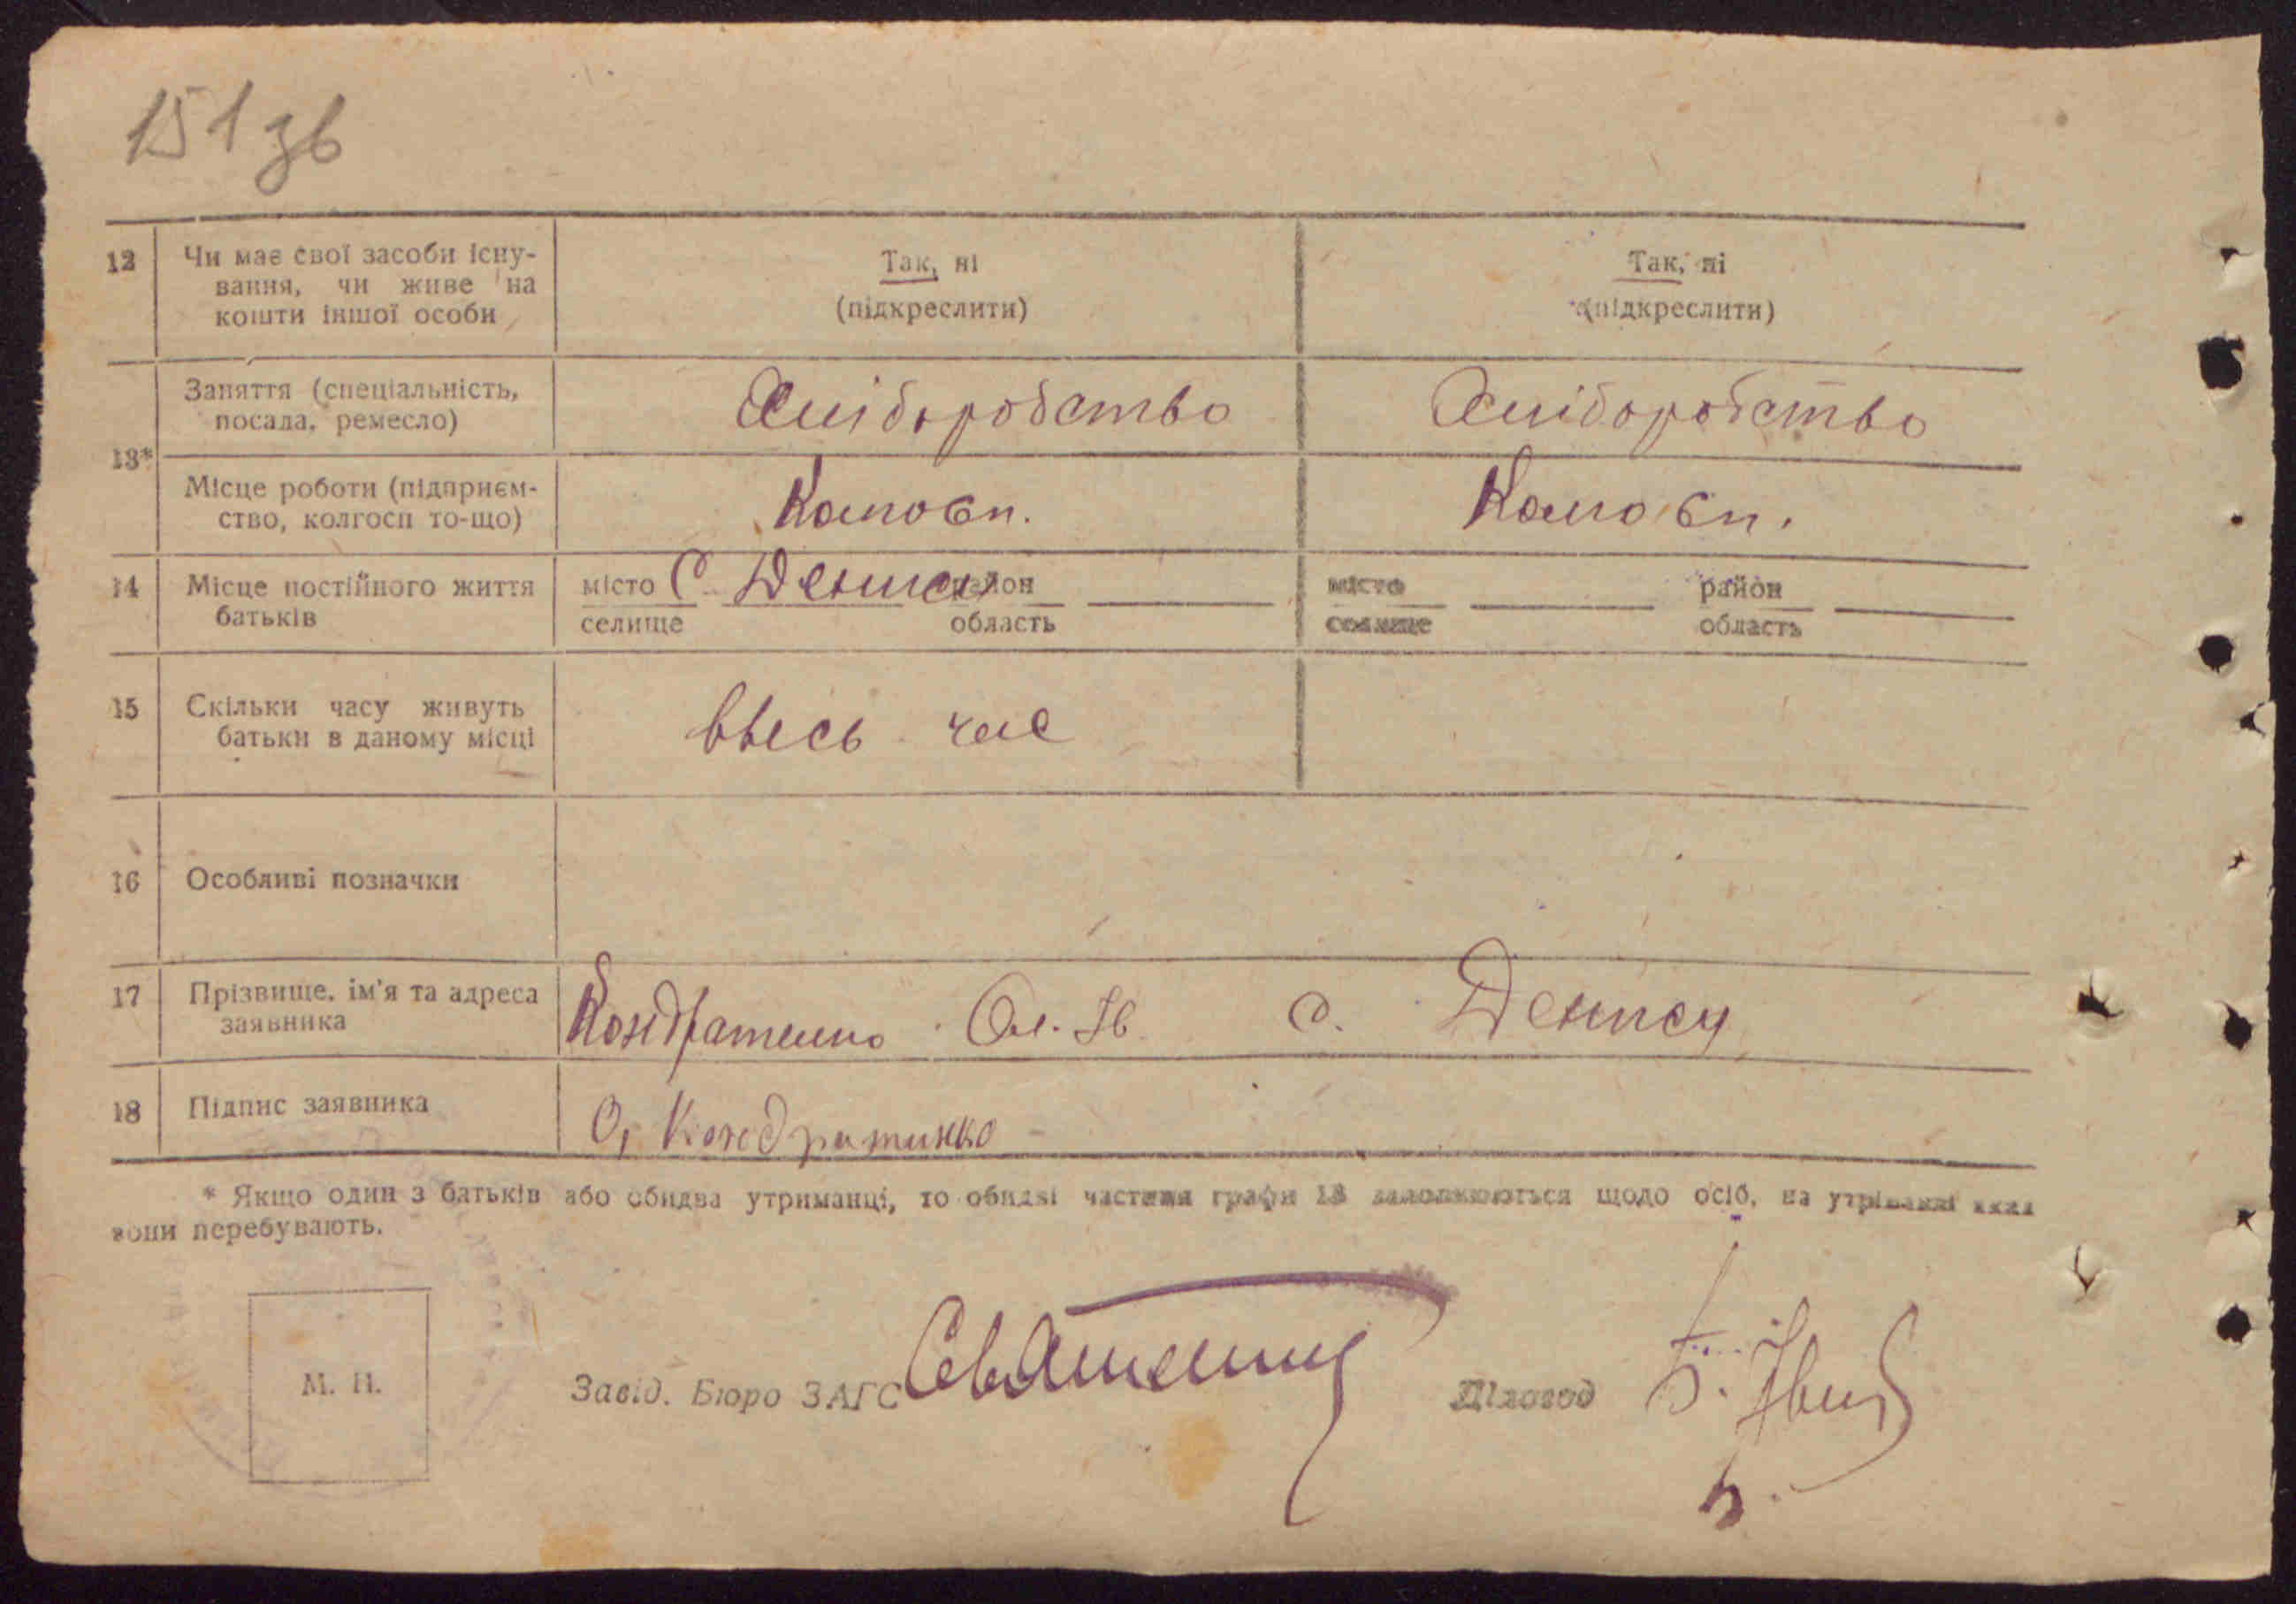 151 зв
12 Чи має свої засоби існу-
вання, чи живе на
кошти іншої особи
Так, ні
(підкреслити)
Так, ні
(підкреслити)
13*
Заняття (спеціальність,
посада, ремесло)
Хліборобство
Хліборобство
Місце роботи (підприєм-
ство, колгосп то-що)
14 Місце постійного життя
батьків
місто С. Дениси район
селище область
місто район
селище область
15 Скільки часу живуть
батьки в даному місці
ввесь час
16 Особливі позначки
17 Прізвище, ім'я та адреса
заявника
Кондратенко Ол. Ів. с. Дениси
18 Підпис заявника
О, Кондратинко
* Якщо один з батьків або обидва утриманці, то обидві частини графи 13 заповнюються щодо осіб, на утріманні яких
вони перебувають.
М. П.
Завід. Бюро ЗАГС
Діловод